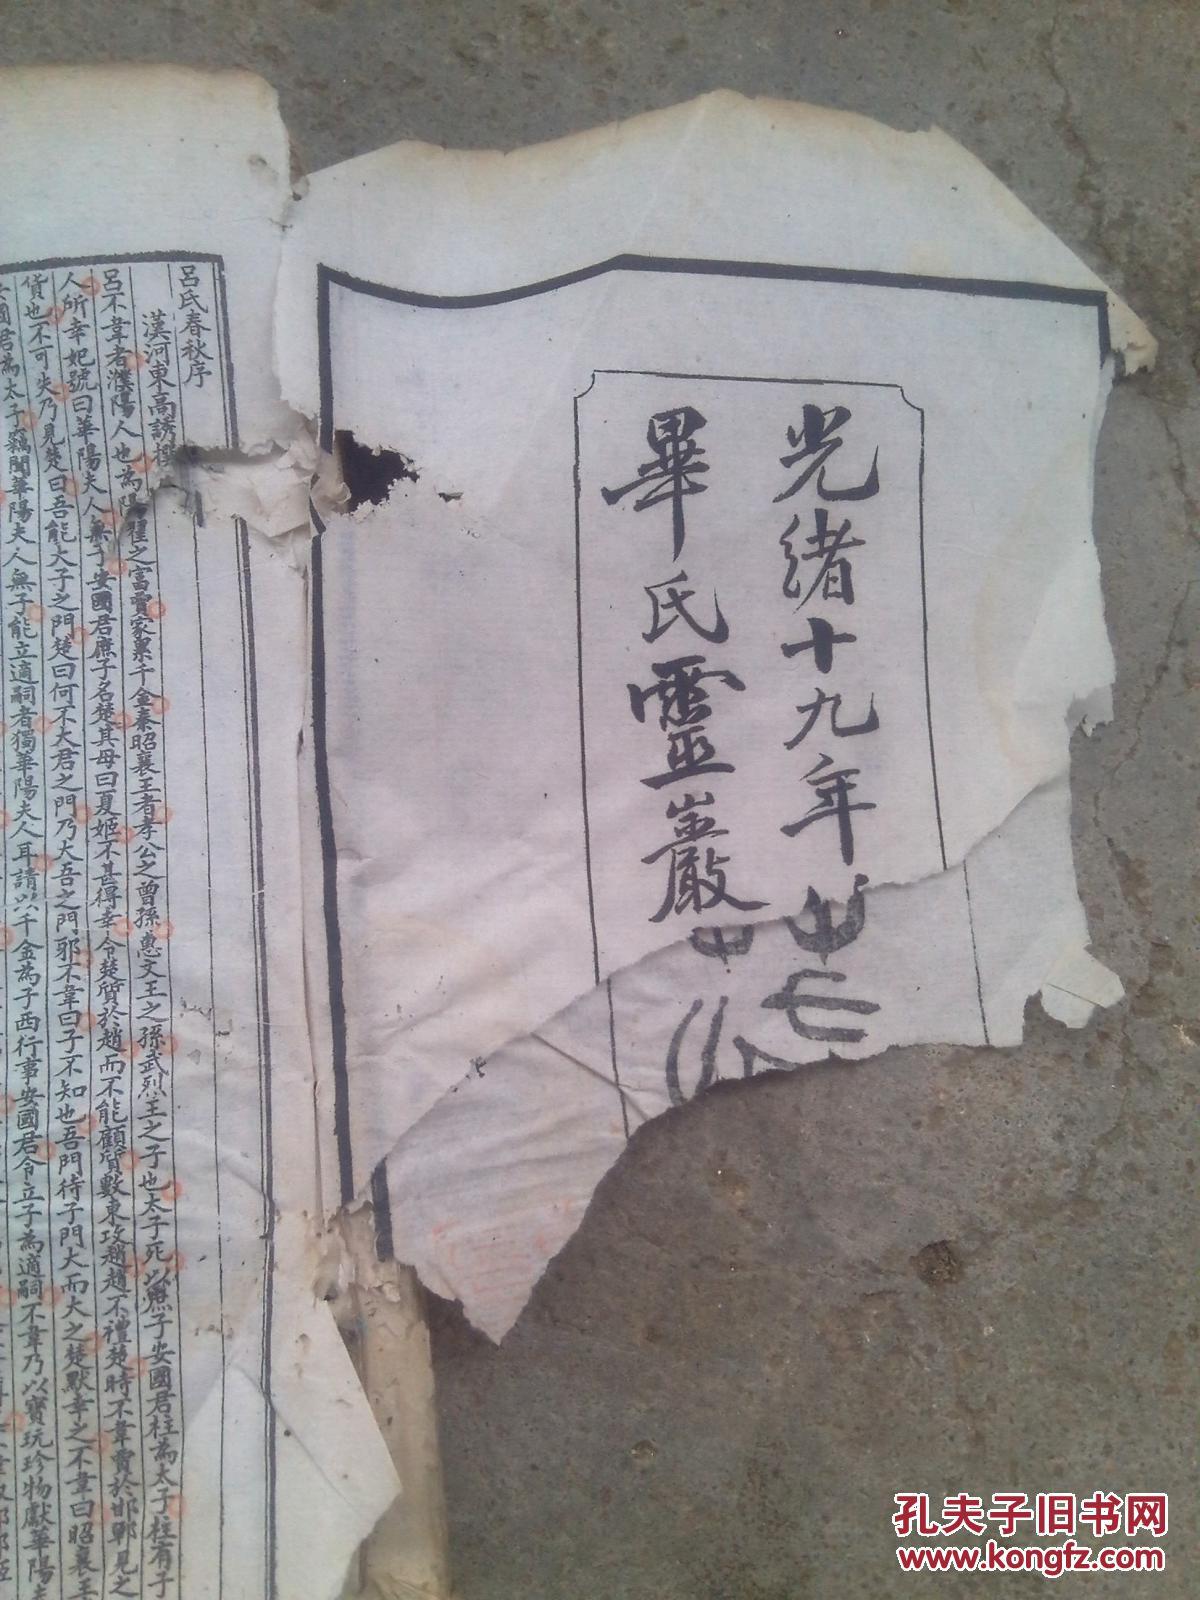 光緒十九年
畢氏靈巖
呂氏春秋序
漢河東高誘撰
呂不韋者濮陽人也為陽翟之富賈家累千金秦昭襄王者孝公之曾孫惠文王之孫武烈王之子也太子死以庶子安國君柱為太子柱有子
人所幸妃號曰華陽夫人無子安國君庶子名楚其母曰夏姬不甚得幸令楚質於趙而不能顧質數東攻趙趙不禮楚時不韋賈於邯鄲見之
貨也不可失乃見楚曰吾能大子之門楚曰何不大君之門乃大吾之門邪不韋曰子不知也吾門待子門大而大之楚默幸之不韋曰昭襄王
安國君為太子竊聞華陽夫人無子能立適嗣者獨華陽夫人耳請以千金為子西行事安國君令立子為適嗣不韋乃以寶玩珍物獻華陽
孔夫子旧书网
www.kongfz.com